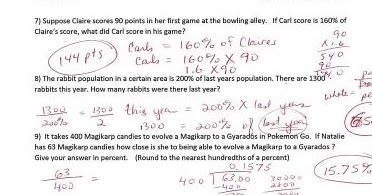 7) Suppose Claire scores 90 points in her first game at the bowling alley. If Carl score is 160% of
Claire's score, what did Carl score in his game?
144 pts
Carls = 160% of Claires
Carls = 160% X 90
1.6 X 90
90
X 1.6
540
90
8) The rabbit population in a certain area is 200% of last years population. There are 1300
rabbits this year. How many rabbits were there last year?
1300
200%
= 1300
2
this year = 200% X last year
1300 = 200% of last year
whole =
9) It takes 400 Magikarp candies to evolve a Magikarp to a Gyarados in Pokemon Go. If Natalie
has 63 Magikarp candies how close is she to being able to evolve a Magikarp to a Gyarados ?
Give your answer in percent. (Round to the nearest hundredths of a percent)
63
400
0.1575
400 63.00
15.75%